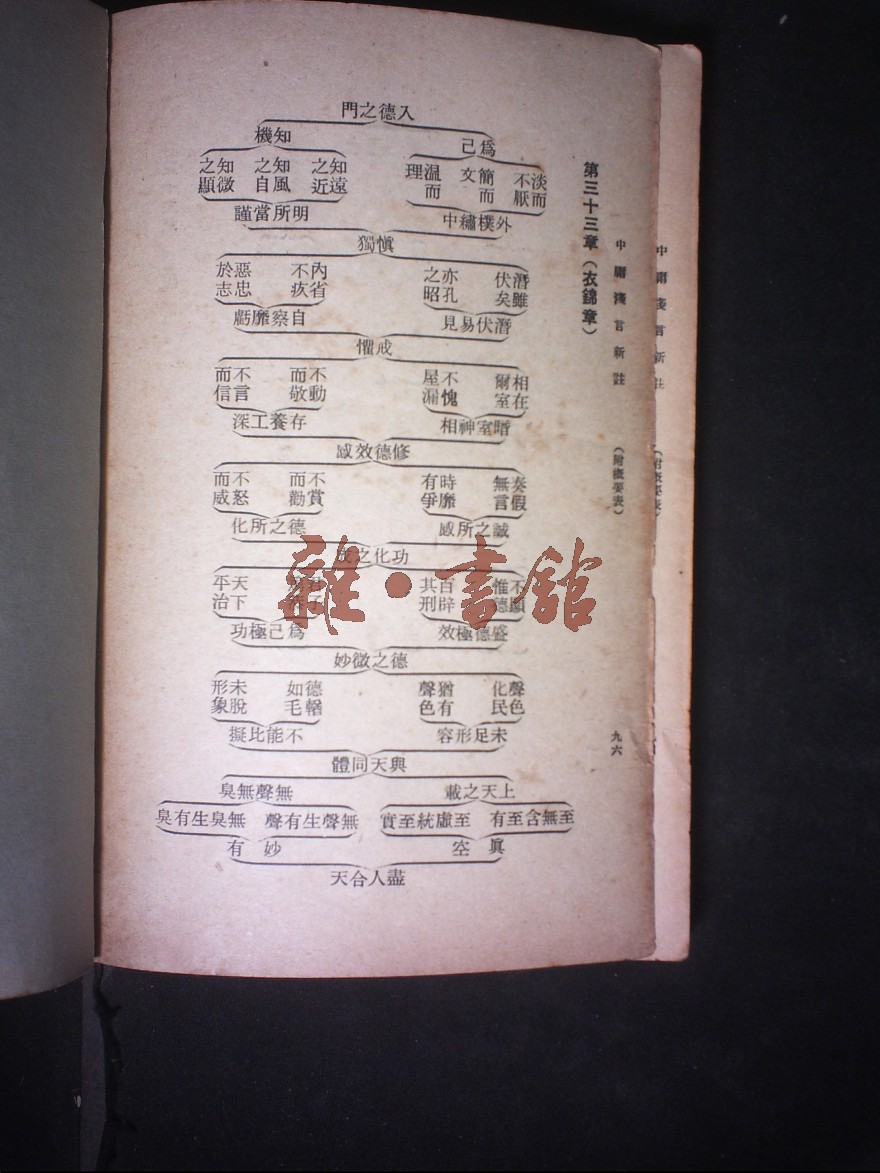 中庸淺言新註
（附概要表）
九六
第三十三章（衣錦章）
入德之門
爲己
知機
淡而不厭
簡而文
溫而理
知遠之近
知風之自
知微之顯
外樸繡中
明所當謹
慎獨
潛雖伏矣
亦孔之昭
內省不疚
惡忠於志
潛伏易見
自察靡虧
戒懼
相在爾室
不愧屋漏
不動而敬
不言而信
暗室神相
存養工深
修德效感
奏假無言
時靡有爭
不賞而勸
不怒而威
誠之所感
德之所化
功化之
不顯惟德
百辟其刑
天下平治
盛德極效
爲己極功
德之微妙
聲色化民
猶有聲色
德輶如毛
未脫形象
未足形容
不能比擬
與天同體
上天之載
無聲無臭
至無含至有
至虛統至實
無聲生有聲
無臭生有臭
真空
妙有
盡人合天
雜·書館
中庸淺言新註
（附概要表）